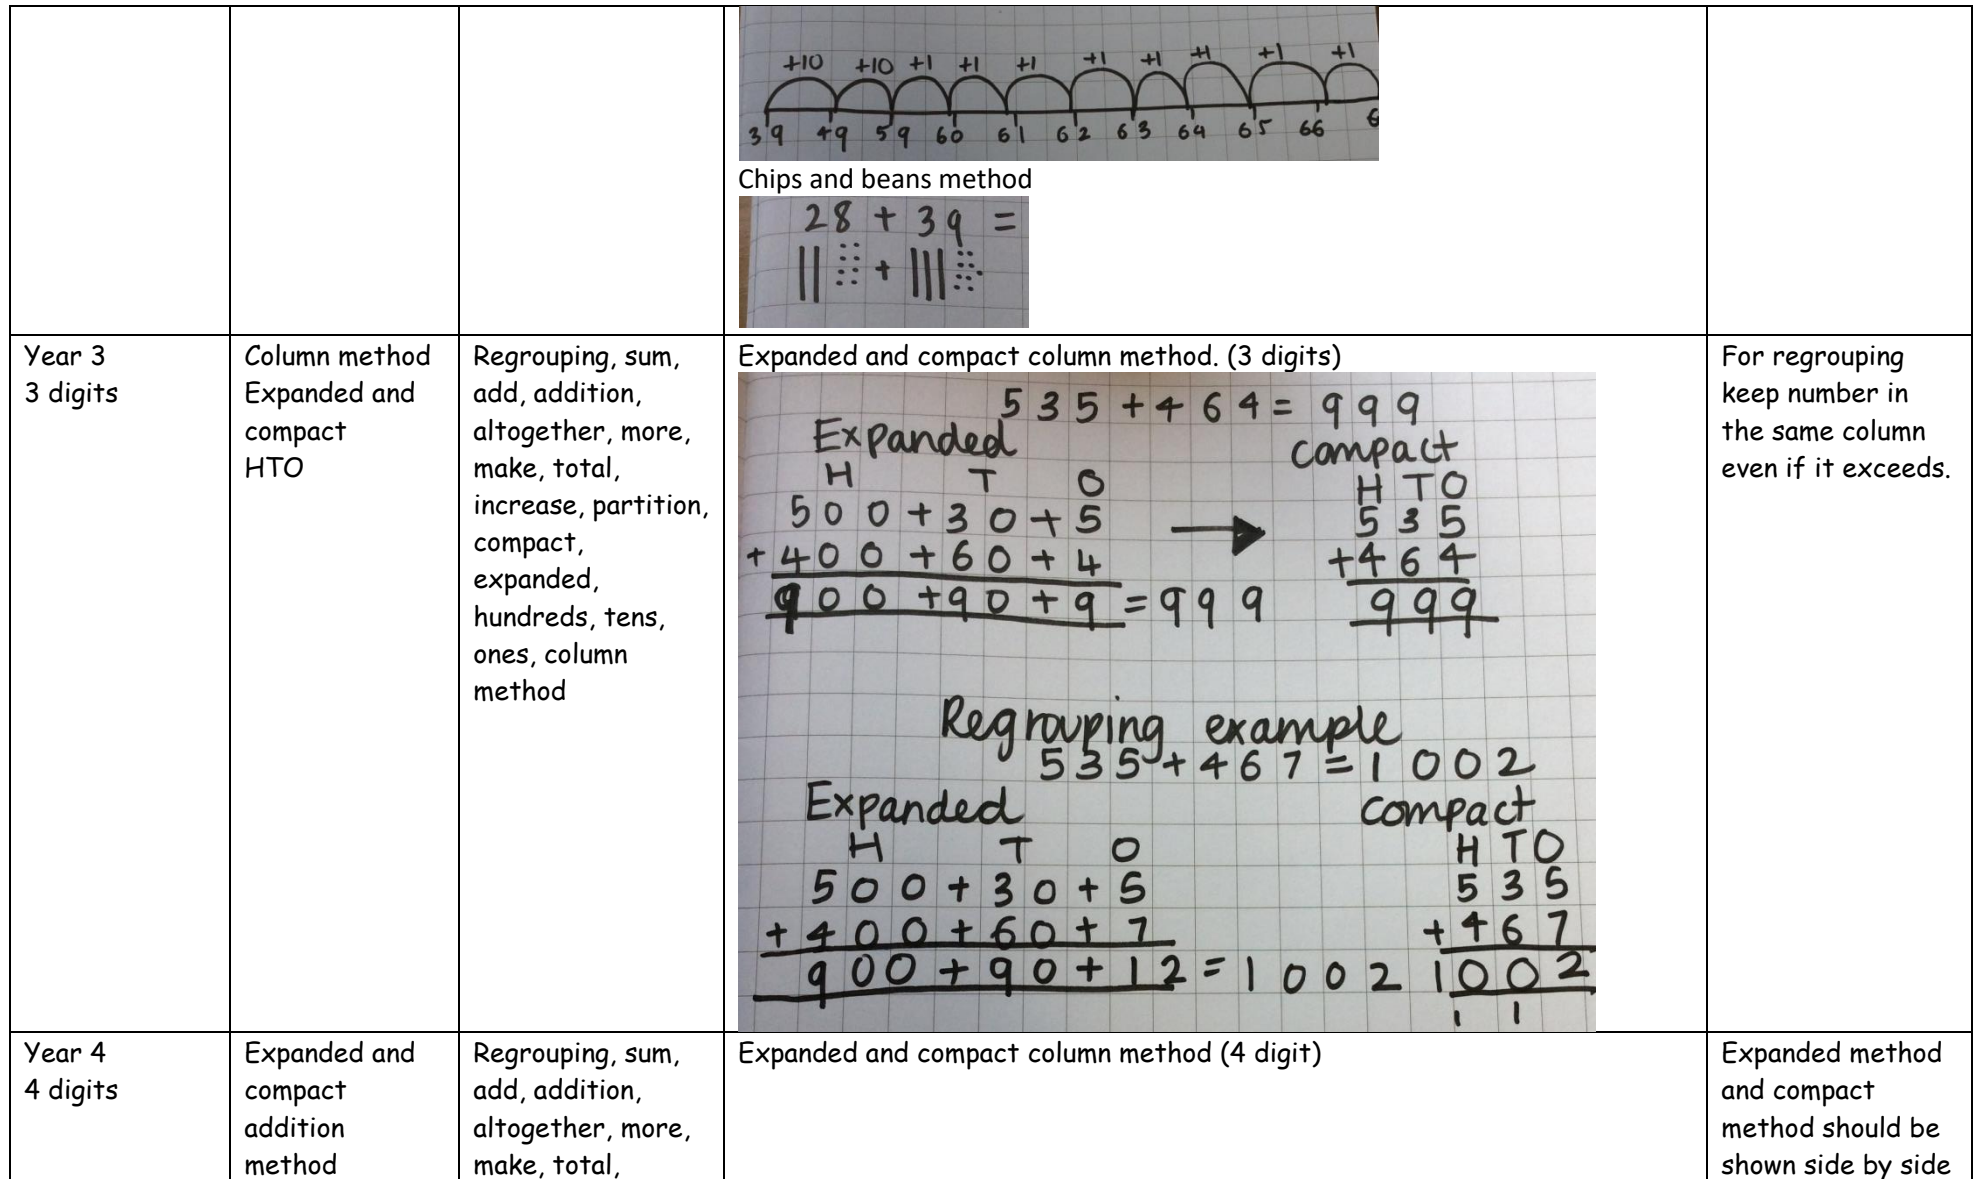 +10 +10 +1 +1 +1 +1 +1 +1 +1 +1
39 49 59 60 61 62 63 64 65 66 6
Chips and beans method
28 + 39 =
+
Year 3
3 digits
Column method
Expanded and
compact
HTO
Regrouping, sum,
add, addition,
altogether, more,
make, total,
increase, partition,
compact,
expanded,
hundreds, tens,
ones, column
method
Expanded and compact column method. (3 digits)
535 + 464 = 999
Expanded
H T O
500 + 30 + 5
+ 400 + 60 + 4
900 + 90 + 9 = 999
compact
H T O
535
+464
999
Regrouping example
535 + 467 = 1002
Expanded
H T O
500 + 30 + 5
+ 400 + 60 + 7
900 + 90 + 12 = 1002
compact
H T O
535
+ 467
1002
1 1
For regrouping
keep number in
the same column
even if it exceeds.
Year 4
4 digits
Expanded and
compact
addition
method
Regrouping, sum,
add, addition,
altogether, more,
make, total,
Expanded and compact column method (4 digit)
Expanded method
and compact
method should be
shown side by side